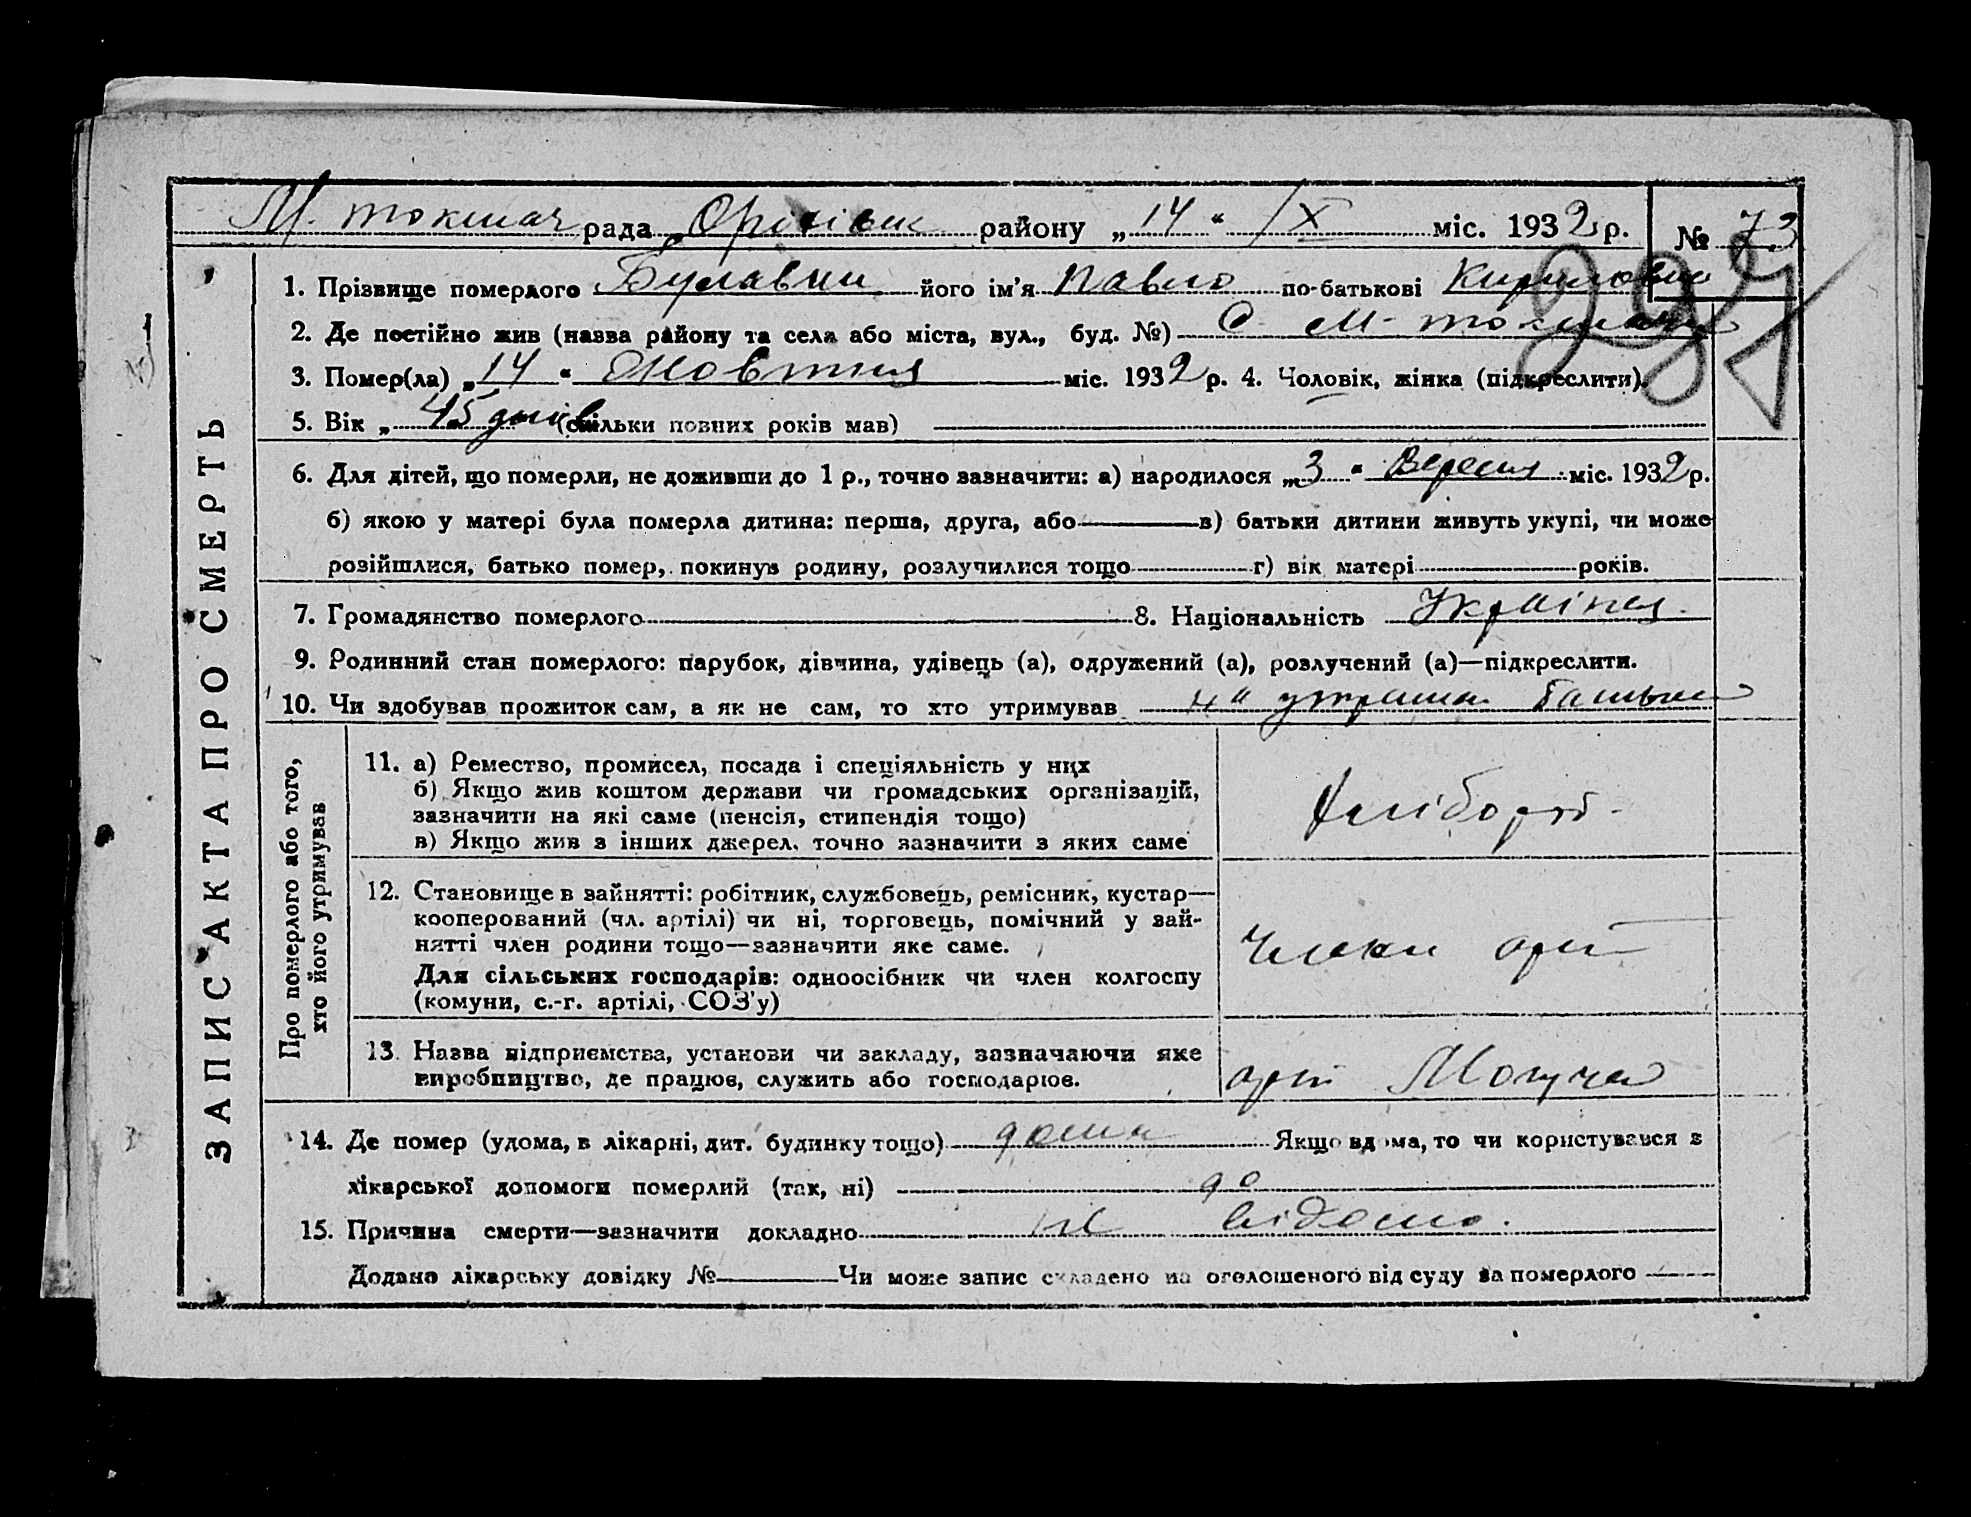 М. токмач рада Оріхівськ району „14“ IX міс. 1932 р. № 73
291
ЗАПИС АКТА ПРО СМЕРТЬ
1. Прізвище померлого Булавин його ім'я Павло по-батькові Кирилович
2. Де постійно жив (назва району та села або міста, вул., буд. №) С. М-токмач
3. Помер(ла) „14“ Жовтня міс. 1932 р. 4. Чоловік, жінка (підкреслити).
5. Вік „45 днів (скільки повних років мав)
6. Для дітей, що померли, не доживши до 1 р., точно зазначити: а) народилося „3“ Вересня міс. 1932 р.
б) якою у матері була померла дитина: перша, друга, або в) батьки дитини живуть укупі, чи може
розійшлися, батько помер, покинув родину, розлучилися тощо г) вік матері років.
7. Громадянство померлого 8. Національність Україня
9. Родинний стан померлого: парубок, дівчина, удівець (а), одружений (а), розлучений (а)—підкреслити.
10. Чи здобував прожиток сам, а як не сам, то хто утримував на утриман батька
Про померлого або того,
хто його утримував
11. а) Ремество, промисел, посада і спеціяльність у них
б) Якщо жив коштом держави чи громадських організацій,
зазначити на які саме (пенсія, стипендія тощо)
в) Якщо жив з інших джерел, точно зазначити з яких саме
Хлібороб
12. Становище в зайнятті: робітник, службовець, ремісник, кустар—
кооперований (чл. артілі) чи ні, торговець, помічний у зай-
нятті член родини тощо—зазначити яке саме.
Для сільських господарів: одноосібник чи член колгоспу
(комуни, с.-г. артілі, СОЗ'у)
арт
13. Назва підприємства, установи чи закладу, зазначаючи яке
виробництво, де працює, служить або господарює.
арт Могуча
14. Де помер (удома, в лікарні, дит. будинку тощо) дома Якщо вдома, то чи користувався з
лікарської допомоги померлий (так, ні)
15. Причина смерти—зазначити докладно не відомо.
Додано лікарську довідку № Чи може запис складено на оголошеного від суду за померлого